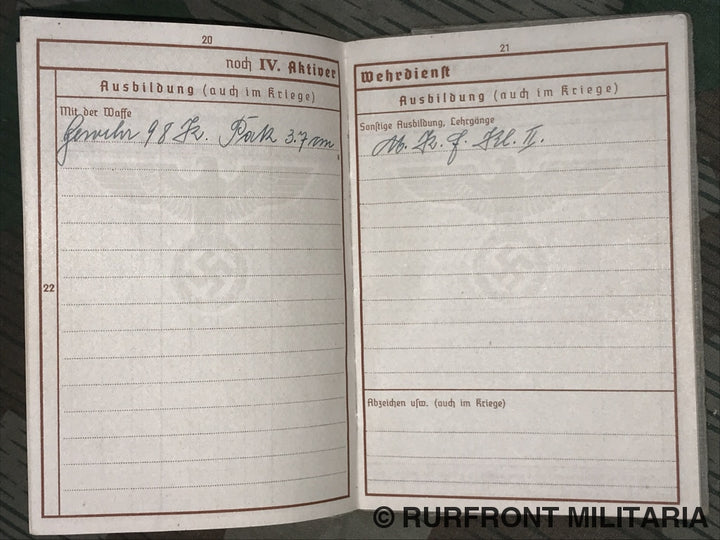 20
noch IV. Aktiver
Ausbildung (auch im Kriege)
Mit der Waffe
Gewehr 98 K. Pak 3.7 cm
22
21
Wehrdienst
Ausbildung (auch im Kriege)
Sonstige Ausbildung, Lehrgänge
M. K. f. Kl. II.
Abzeichen usw. (auch im Kriege)
© RURFRONT MILITARIA